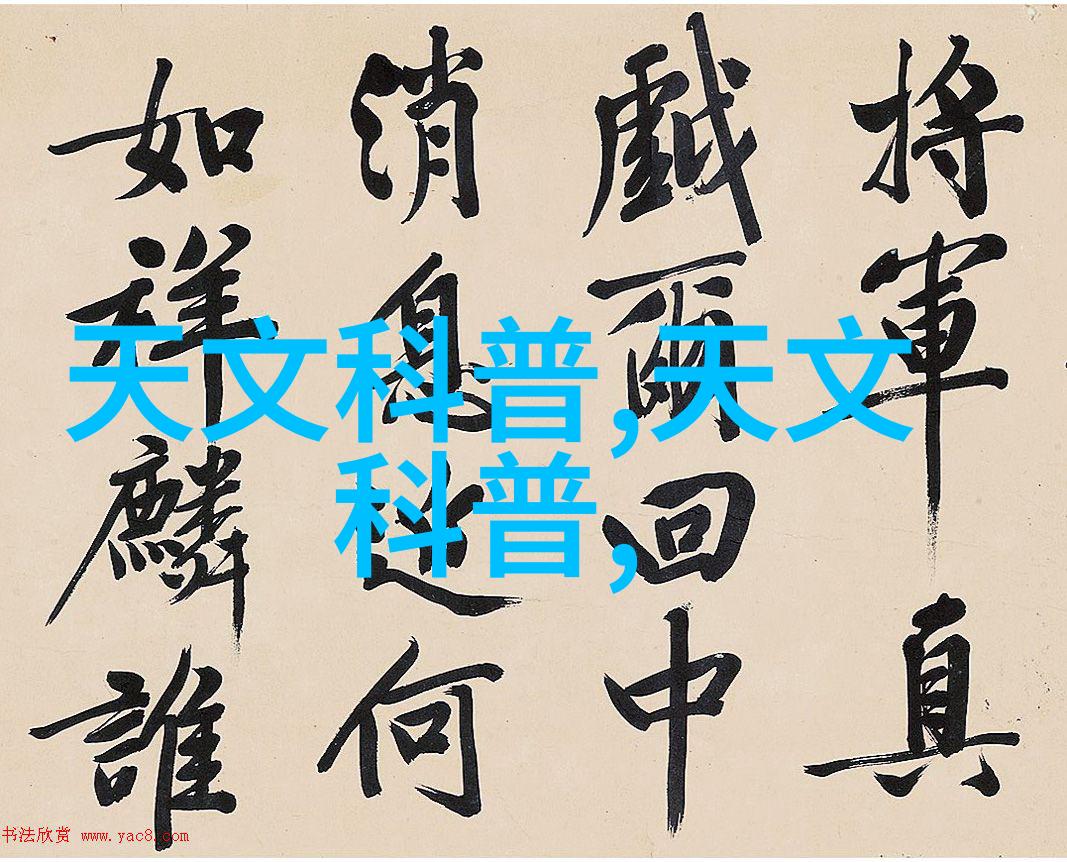 将軍真
戲爾回中
消息近何
如祥麟誰
天文科普,天文
科普,
书法欣赏 www.yac8.com